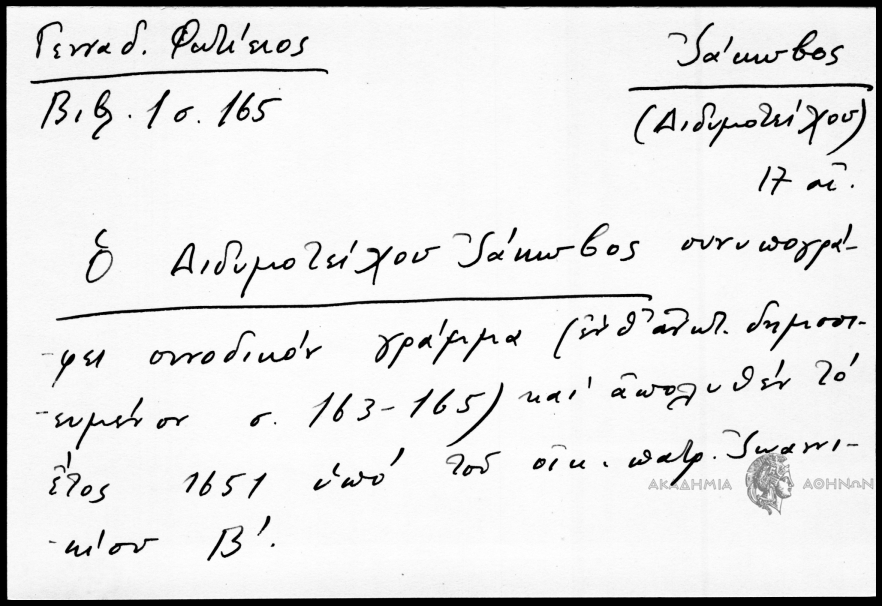 Γενναδ. Φωτίειος
Βιβ. 1 σ. 165
Ἰάκωβος
(Διδυμοτείχου)
17 αἰ.
Ὁ Διδυμοτείχου Ἰάκωβος συνυπογρά-
-φει συνοδικόν γράμμα (ἐνθ' ἀνωτ. δημοσι-
-ευμένον σ. 163-165) καί ἀπολυθέν τό
ἔτος 1651 ὑπό τοῦ οἰκ. πατρ. Ἰωαννι-
-κίου Β'.
ΑΚΑΔΗΜΙΑ ΑΘΗΝΩΝ